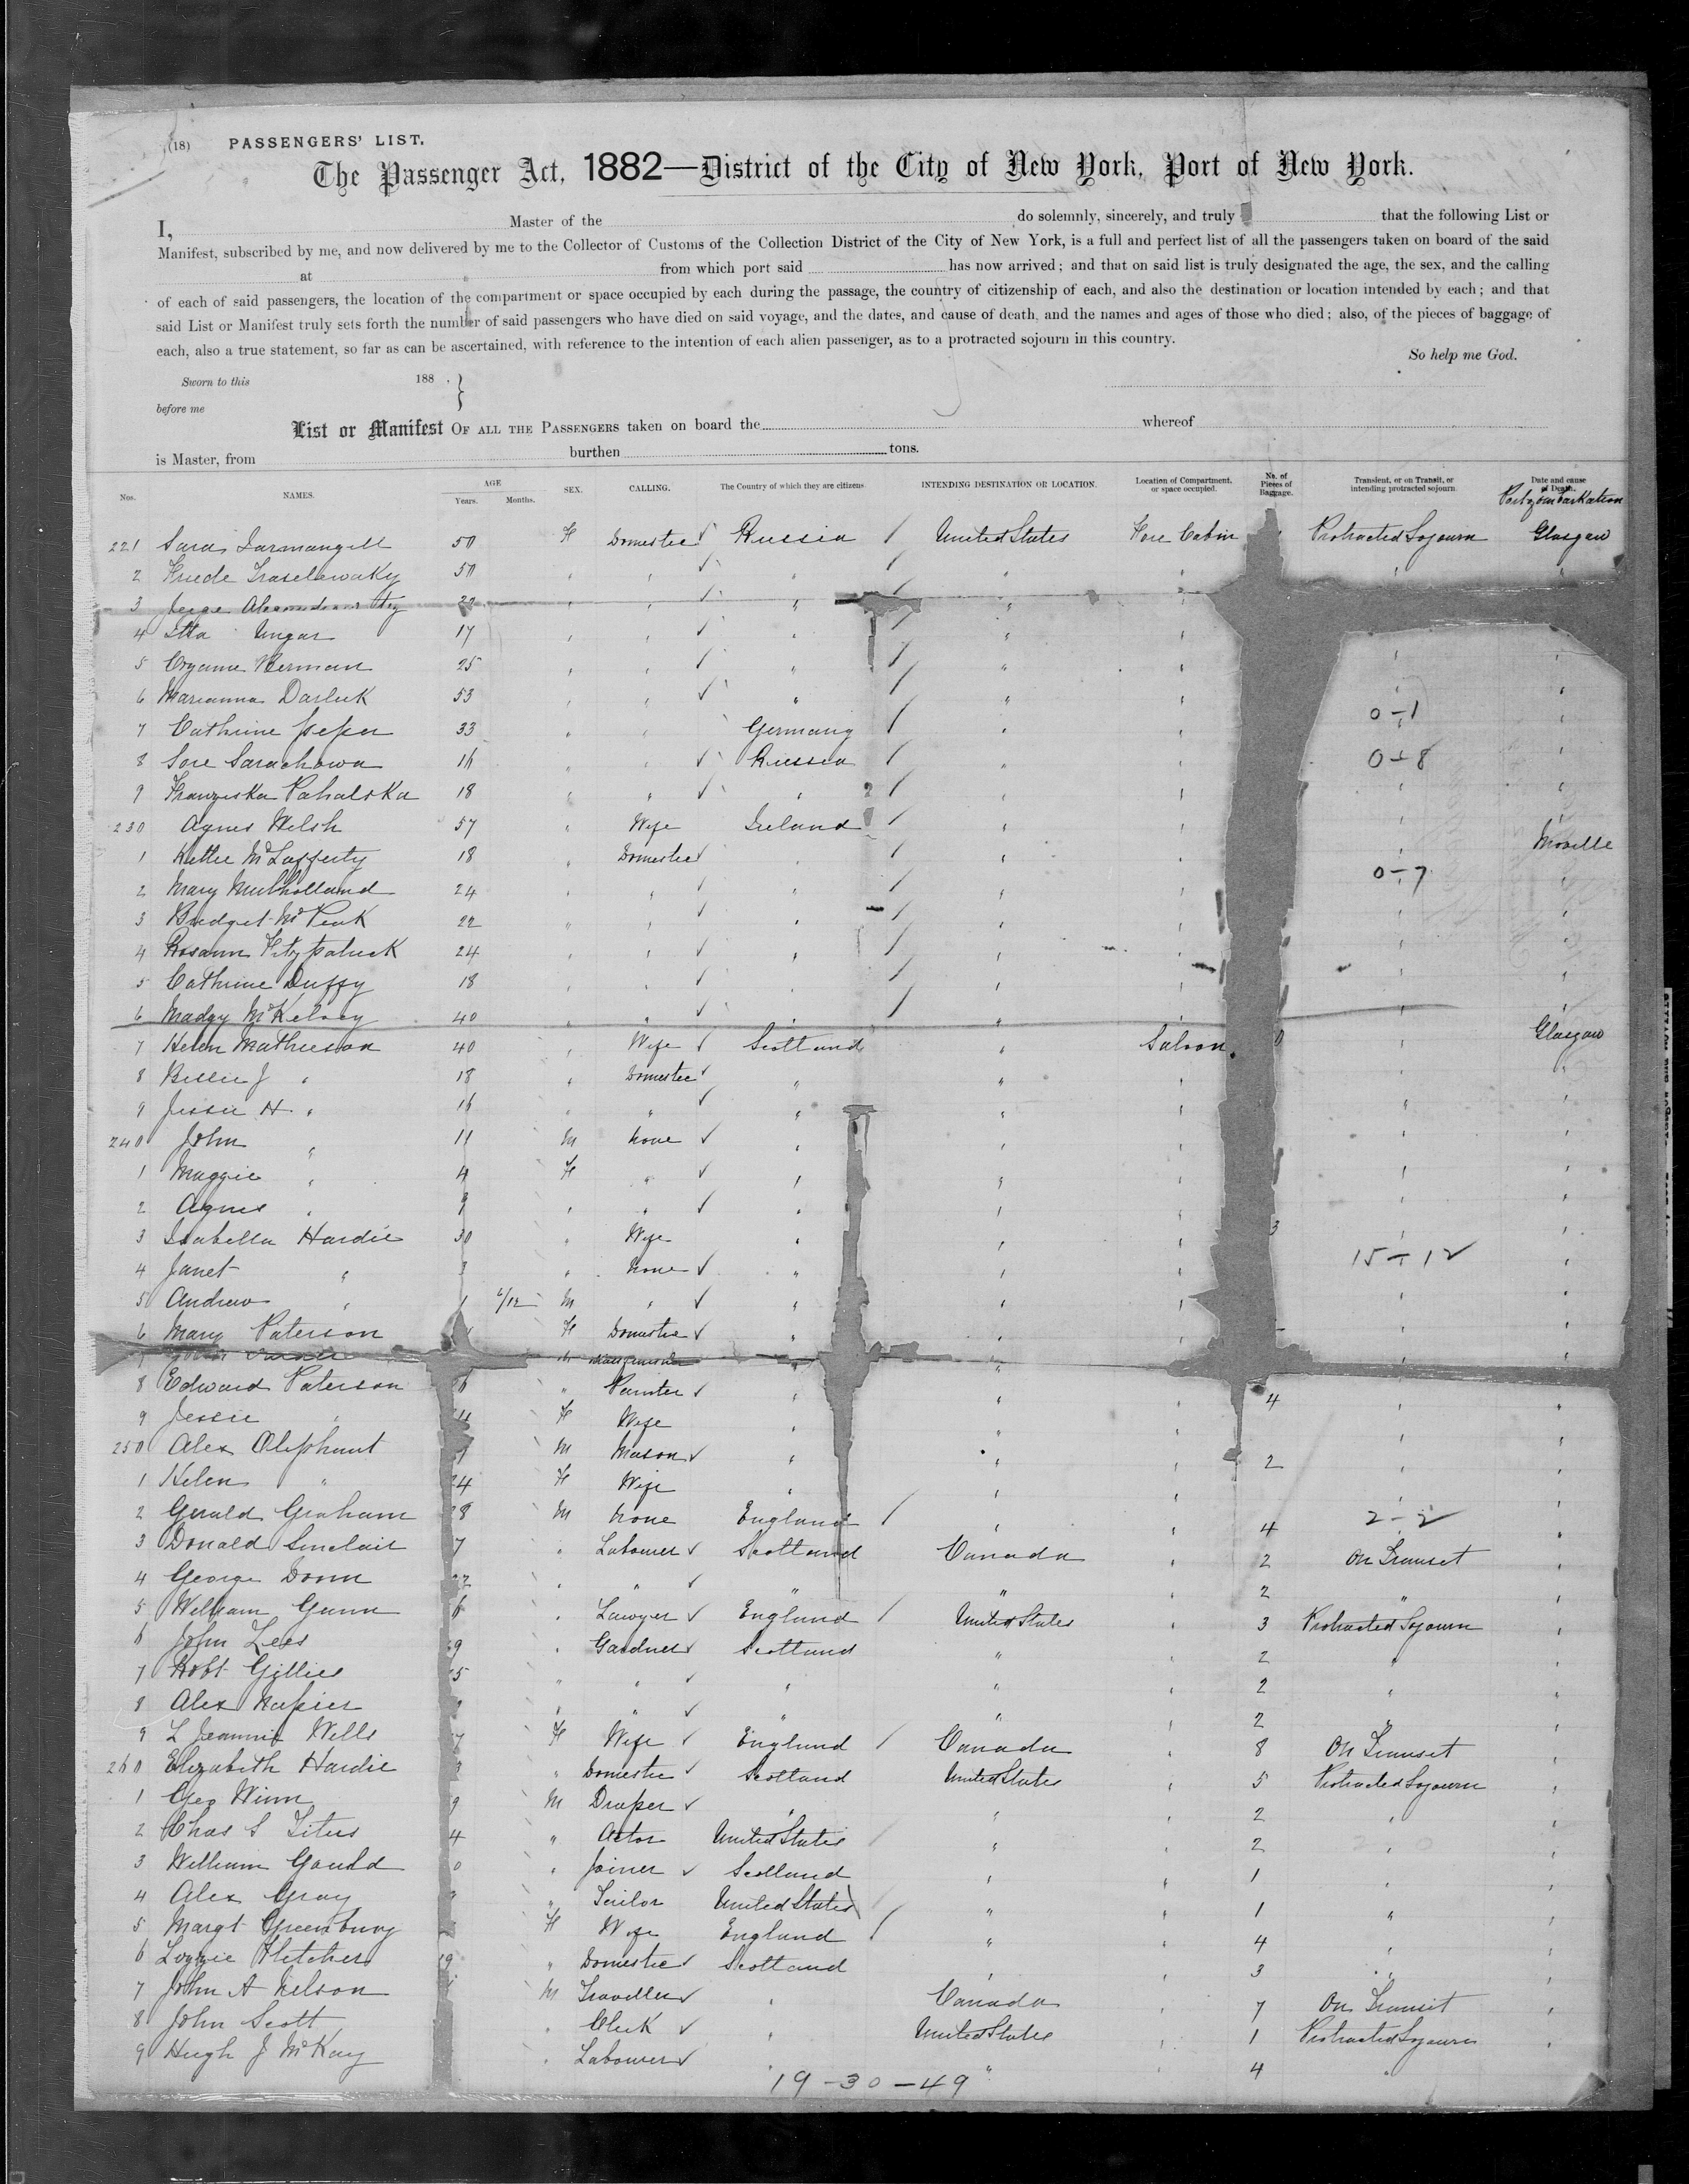 (18) PASSENGERS' LIST.
The Passenger Act, 1882—District of the City of New York, Port of New York.
I, Master of the do solemnly, sincerely, and truly that the following List or
Manifest, subscribed by me, and now delivered by me to the Collector of Customs of the Collection District of the City of New York, is a full and perfect list of all the passengers taken on board of the said
at from which port said has now arrived; and that on said list is truly designated the age, the sex, and the calling
of each of said passengers, the location of the compartment or space occupied by each during the passage, the country of citizenship of each, and also the destination or location intended by each; and that
said List or Manifest truly sets forth the number of said passengers who have died on said voyage, and the dates, and cause of death, and the names and ages of those who died; also, of the pieces of baggage of
each, also a true statement, so far as can be ascertained, with reference to the intention of each alien passenger, as to a protracted sojourn in this country.
So help me God.
Sworn to this 188 .
before me
List or Manifest OF ALL THE PASSENGERS taken on board the whereof
is Master, from burthen tons.
Nos. NAMES. AGE Years. Months. SEX. CALLING. The Country of which they are citizens. INTENDING DESTINATION OR LOCATION. Location of Compartment, or space occupied. No. of Pieces of Baggage. Transient, or on Transit, or intending protracted sojourn. Date and cause of Death.
Port of Embarkation
221 Sara 50 F Domestic Russia United States Fore Cabin Protracted Sojourn Glasgow
2 50 " " " " " " "
3 " " " " "
4 Itta Ungar 17 " " " " " "
5 Herman 25 " " " " " " "
6 Marianna Darluk 53 " " " " " " "
7 Cathrine 33 " " Germany " " 0-1 "
8 Sore Sarachowa 16 " " Russia " " 0-8 "
9 Franziska Pahalska 18 " " " " " " "
230 Agnes Welsh 57 " Wife Ireland " " " "
1 McLafferty 18 " Domestic " " " " Moville
2 Mary Mulholland 24 " " " " " 0-7 "
3 Bridget McPeak 22 " " " " " " "
4 Rosann Fitzpatrick 24 " " " " " " "
5 Cathrine Duffy 18 " " " " " " "
6 Madgy McKelvey 40 " " " " " "
7 Helen Mathieson 40 " Wife Scotland " Saloon " Glasgow
8 Bellie J " 18 " Domestic " " " " "
9 Jessie H. " 16 " " " " " " "
240 John " 11 M None " " " " "
1 Maggie " 4 F " " " " " "
2 Agnes " " " " " " " "
3 Isabella Hardie 30 " Wife " " " 3 " "
4 Janet " 3 " None " " " 15-12 "
5 Andrew " 1 M " " " " " "
6 Mary Paterson F Domestic " " " " "
7 " " "
8 Edward Paterson " Painter " " " 4 " "
9 Jessie " F Wife " " " " "
250 Alex Oliphant M Mason " " " 2 " "
1 Helen " 24 F Wife " " " " "
2 Gerald Graham 28 M None England " " 4 2-2 "
3 Donald Sinclair 7 " Labourer Scotland Canada " 2 On Transit "
4 George Doom " " " " " 2 " "
5 William Gunn 6 " Lawyer England United States " 3 Protracted Sojourn "
6 John Lees 9 " Gardner Scotland " " 2 " "
7 Robt Gillies 5 " " " " " 2 " "
8 Alex Napier " " " " " 2 " "
9 L Jeannie Wells 7 F Wife England Canada " 8 On Transit "
260 Elizabeth Hardie 3 " Domestic Scotland United States " 5 Protracted Sojourn "
1 Geo Winn 9 M Draper " " " 2 " "
2 Chas S Titus 4 " Actor United States " " 2 " "
3 William Gauld 0 " Joiner Scotland " " 1 " "
4 Alex Gray " Sailor United States " " 1 " "
5 Margt Greenbury F Wife England " " 4 " "
6 Lizzie Fletcher 19 " Domestic Scotland " " 3 " "
7 John A Nelson M Traveller " Canada " 7 On Transit "
8 John Scott " Clerk " United States " 1 Protracted Sojourn "
9 Hugh J McKay " Labourer " " " 4 "
19-30-49